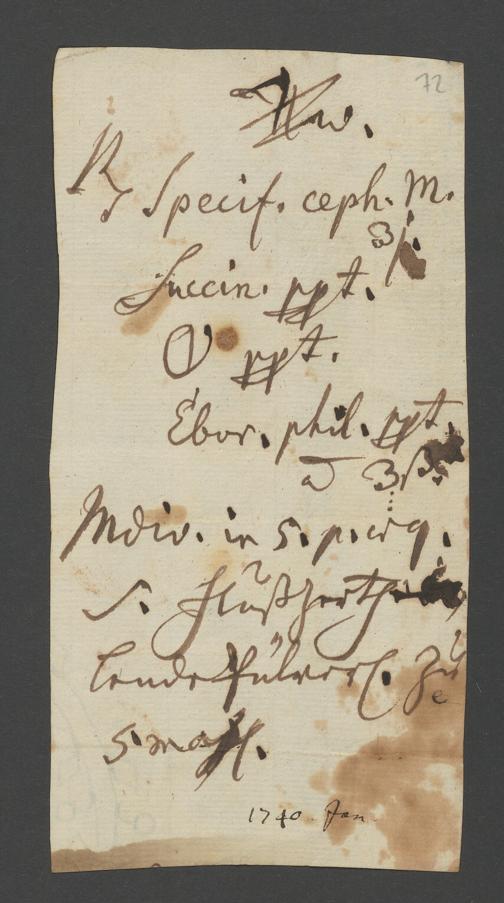 72
℞ Specif. ceph. M.
ʒj.
Succin. ppt.
ppt.
Ebor. phil. ppt.
ā ʒß.
Mdiv. in 5. p. aeq.
S. Flußzerthei
lende Pülverl. zu
5 mahl.
1740 Jan